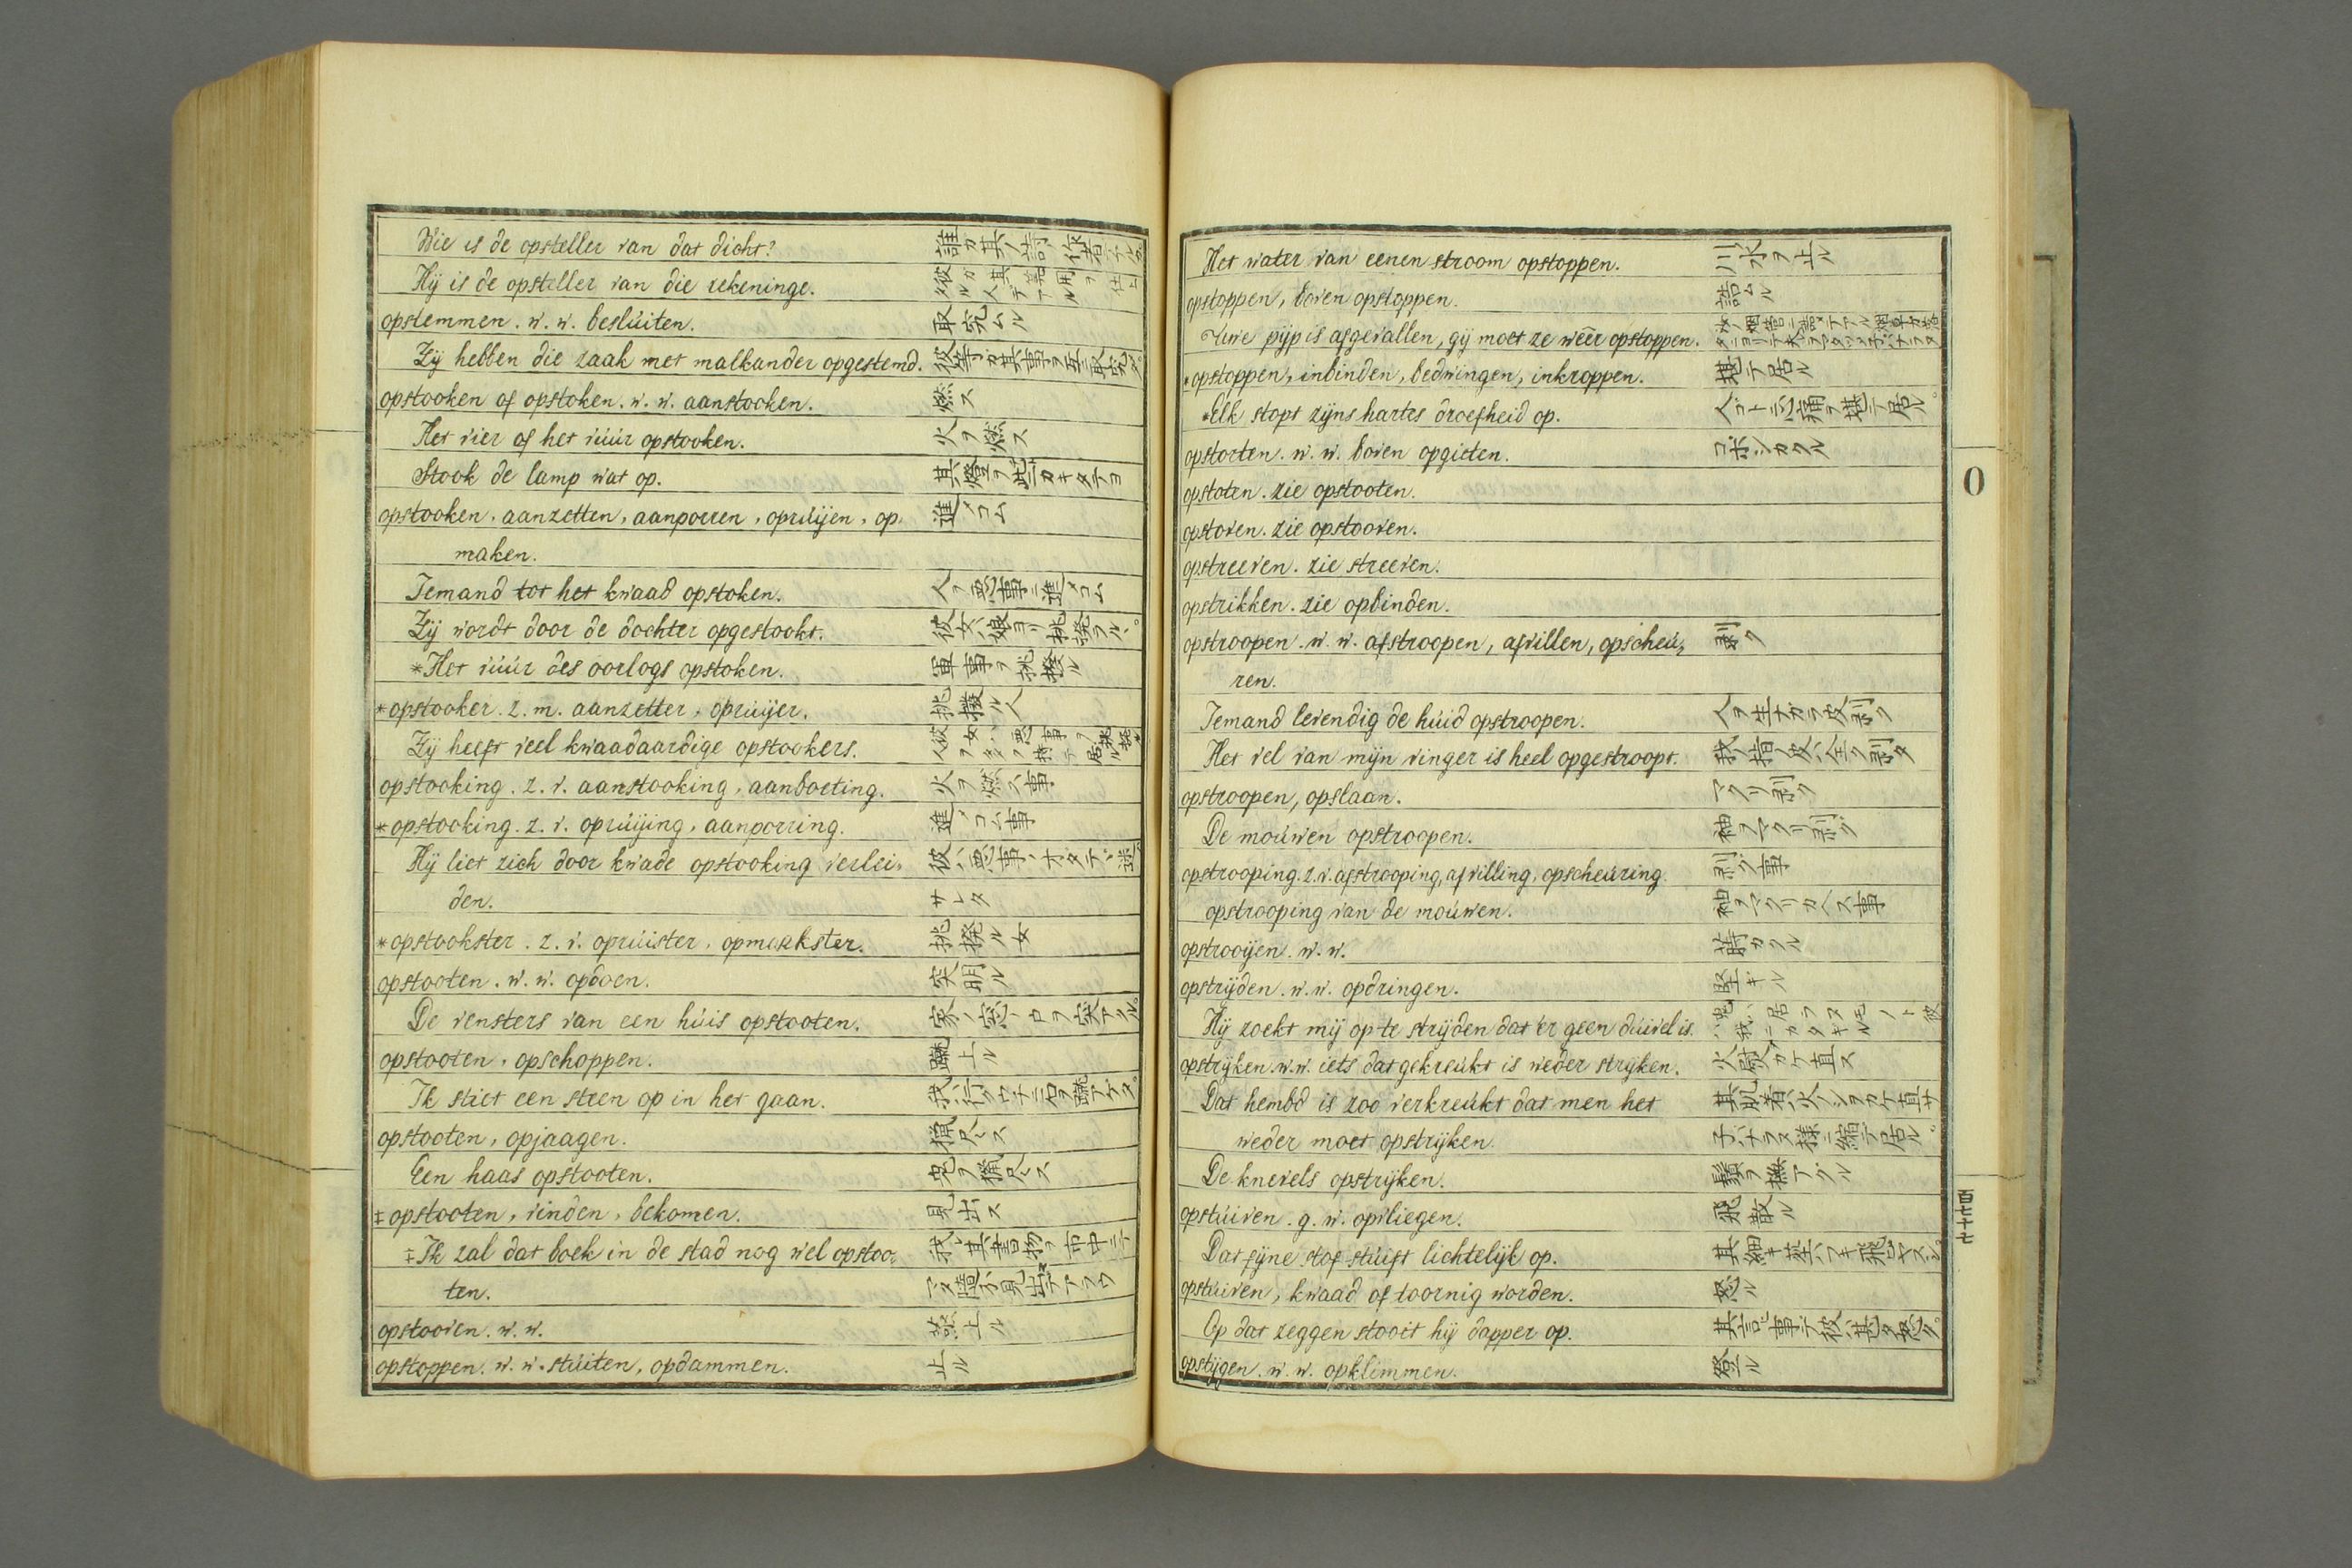 Wie is de opsteller van dat dicht? 誰ガ其ノ詩ノ作者デル
Hij is de opsteller van die rekeninge.
opstemmen. w. w. beslúiten. 取究ムル
Zij hebben die zaak met malkander opgestemd. 彼等ガ其事ヲ互ニ取究タ
opstooken of opstoken. w. w. aanstooken. 燃ス
Het vier of het vúúr opstooken. 火ヲ燃ス
Stook de lamp wat op. 其燈ヲ些カキタテヨ
opstooken, aanzetten, aanporren, oprúijen, op- 進メコム
maken.
Iemand tot het kwaad opstoken. 人ヲ悪事ニ進メコム
Zij wordt door de dochter opgestookt. 彼女ハ娘ヨリ挑撥ラル
*Het vúúr des oorlogs opstoken. 軍事ヲ挑撥ル
*opstooker. z. m. aanzetter, oprúijer. 挑撥ル人
Zij heeft veel kwaadaardige opstookers.
opstooking. z. v. aanstooking, aanboeting. 火ヲ燃ス事
*opstooking. z. v. oprúijing, aanporring. 進メコム事
Hij liet zich door kwade opstooking verlei- 彼ハ悪事ノオダテニ迷
den. サレタ
*opstookster. z. v. oprúister, opmaakster. 挑撥ル女
opstooten. w. w. opdoen. 突開ル
De vensters van een húis opstooten. 家ノ窓ノ口ヲ突アクル
opstooten, opschoppen. 蹴上ル
Ik stiet een steen op in het gaan.
opstooten, opjaagen. 獵尽ス
Een haas opstooten. 兎ヲ獵尽ス
‡opstooten, vinden, bekomen. 見出ス
‡Ik zal dat boek in de stad nog wel opstoo- 我ハ其書物ヲ市中ニテ
ten.
opstooven. w. w. 蒸上ル
opstoppen. w. w. stúiten, opdammen. 止ル
Het water van eenen stroom opstoppen. 川水ヲ止ル
opstoppen, boven opstoppen. 詰ムル
Uwe pijp is afgevallen, gij moet ze wêer opstoppen.
*opstoppen, inbinden, bedwingen, inkroppen. 堪テ居ル
*Elk stopt zijns hartes droefheid op. 人ゴトニ心痛ヲ堪テ居ル
opstorten. w. w. boven opgieten. コボシカクル
opstoten. zie opstooten.
opstoven. zie opstooven.
opstreeven. zie streeven.
opstrikken. zie opbinden.
opstroopen. w. w. afstroopen, afvillen, opscheú- 剥ク
ren.
Iemand levendig de húid opstroopen. 人ヲ生ナガラ皮剥ク
Het vel van mijn vinger is heel opgestroopt. 我指ノ皮ハ全ク剥タ
opstroopen, opslaan. マクリ剥ク
De moúwen opstroopen. 袖ヲマクリ剥グ
opstrooping. z. v. afstrooping, afvilling, opscheúring. 剥ク事
opstrooping van de moúwen. 袖ヲマクリカヘス事
opstrooijen. w. w. 蒔カクル
opstrijden. w. w. opdringen. 堅ギル
Hij zoekt mij op te strijden dat 'er geen dúivel is.
opstrijken. w. w. iets dat gekreúkt is weder strijken. 火熨ヲカケ直ス
Dat hembd is zoo verkreúkt dat men het 其肌着ハ火ノシヲカケ直サ
weder moet opstrijken. 子バナラヌ様ニ縮テ居ル
De knevels opstrijken. 鬚ヲ撫アグル
opstúiven. g. w. opvliegen. 飛散ル
Dat fijne stof stúift lichtelijk op.
opstúiven, kwaad of toornig worden. 怒ル
Op dat zeggen stooit hij dapper op. 其言事デ彼ハ甚タ怒タ
opstijgen. w. w. opklimmen. 登ル
O
百七十七